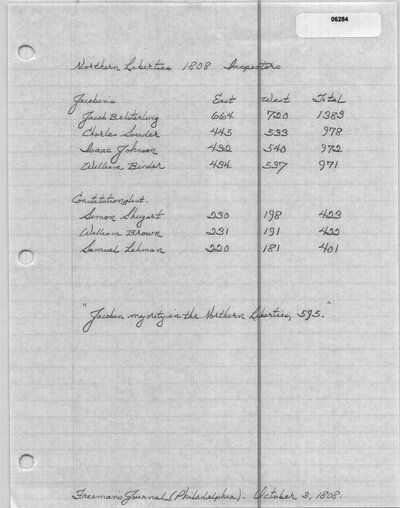 06284
Northern Liberties 1808 Inspectors
Jacobins East West Total
Jacob Belsterling 664 720 1383
Charles Souder 445 533 978
Isaac Johnson 432 540 972
William Binder 434 537 971
Constitutionalist.
Simon Shugart 230 198 423
William Brown 231 191 422
Samuel Lehman 220 181 401
"Jacobin majority in the Northern Liberties, 595."
Freeman's Journal (Philadelphia). October 3, 1808.